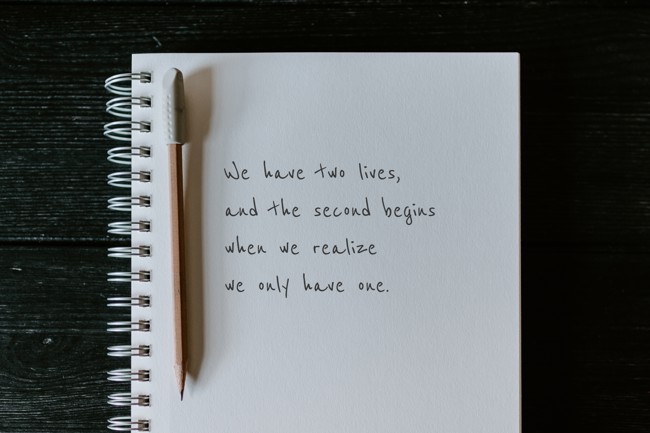 We have two lives,
and the second begins
when we realize
we only have one.